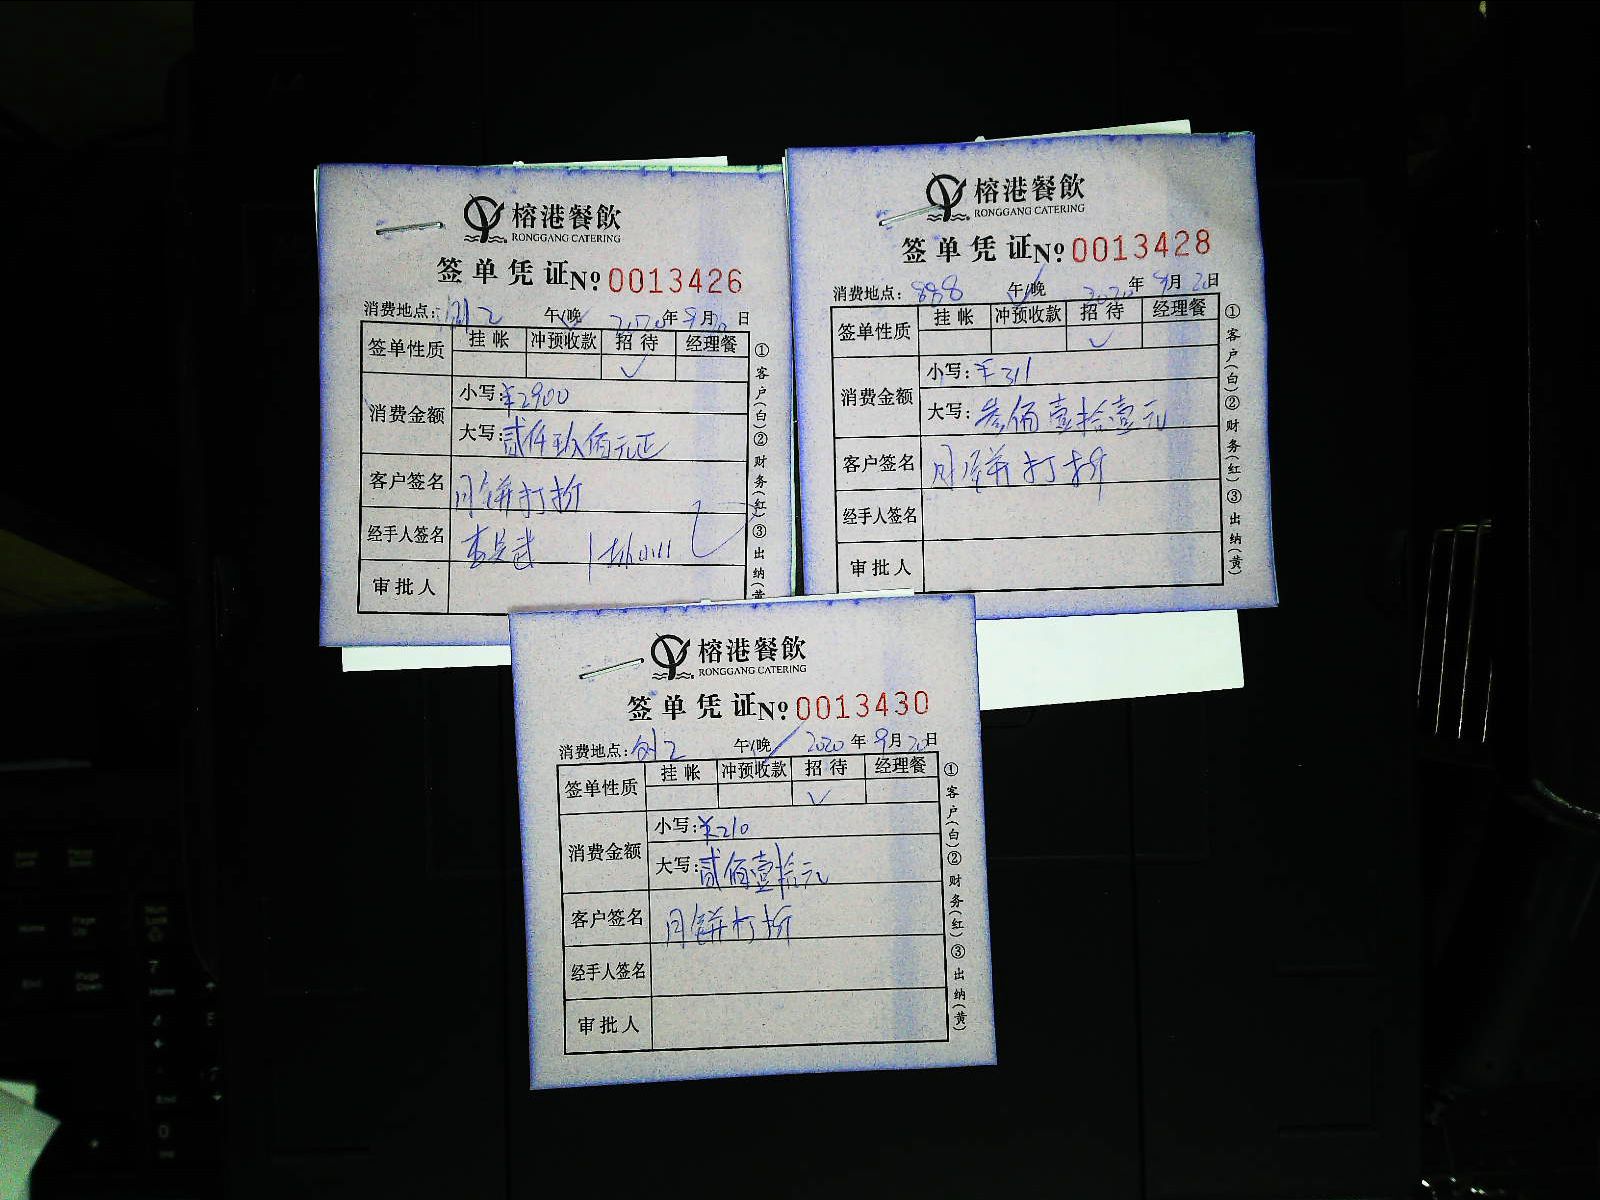 榕港餐飲
RONGGANG CATERING
签单凭证№ 0013426
消费地点: 2 午/晚 2020年9月20日
签单性质 挂帐 冲预收款 招待 经理餐
✓
消费金额 小写:¥2900
大写:贰仟玖佰元正
客户签名 月饼打折
经手人签名
审批人
①客户(白)②财务(红)③出纳(黄
榕港餐飲
RONGGANG CATERING
签单凭证№ 0013428
消费地点: 888 午/晚 2020年9月20日
签单性质 挂帐 冲预收款 招待 经理餐
✓
消费金额 小写:¥311
大写:叁佰壹拾壹元
客户签名 月饼打折
经手人签名
审批人
①客户(白)②财务(红)③出纳(黄)
榕港餐飲
RONGGANG CATERING
签单凭证№ 0013430
消费地点: 2 午/晚 2020年9月20日
签单性质 挂帐 冲预收款 招待 经理餐
✓
消费金额 小写:¥210
大写:贰佰壹拾元
客户签名 月饼打折
经手人签名
审批人
①客户(白)②财务(红)③出纳(黄)
Home
End
Page Down
7
Home
4
End
0